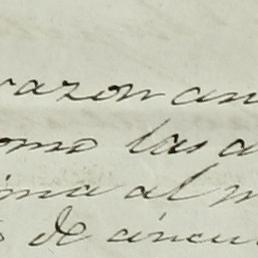 razon an
omo las a
ima al m
s de circu